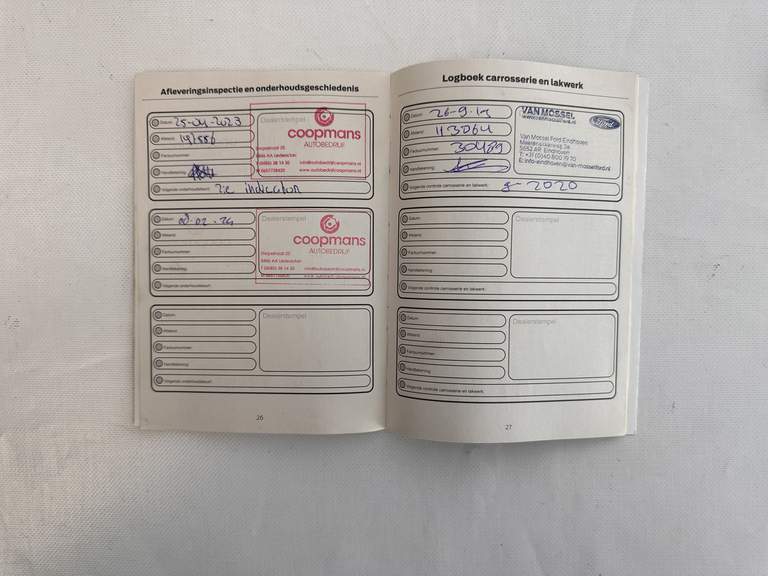 Afleveringsinspectie en onderhoudsgeschiedenis
Datum: 25-04-2023
Afstand:
Factuurnummer:
Handtekening:
Volgende onderhoudsbeurt: zie indicator
Dealerstempel
coopmans
AUTOBEDRIJF
Dorpsstraat 20
T
info@autobedrijfcoopmans.nl
www.autobedrijfcoopmans.nl
Datum:
Afstand:
Factuurnummer:
Handtekening:
Volgende onderhoudsbeurt:
Dealerstempel
coopmans
AUTOBEDRIJF
Dorpsstraat 20
T
info@autobedrijfcoopmans.nl
Datum:
Afstand:
Factuurnummer:
Handtekening:
Volgende onderhoudsbeurt:
Dealerstempel
26
Logboek carrosserie en lakwerk
Datum: 26-9-19
Afstand: 113064
Factuurnummer:
Handtekening:
Volgende controle carrosserie en lakwerk: 8-2020
VAN MOSSEL
Ford
Van Mossel Ford Eindhoven
Meerenakkerweg 3a
5652 AR Eindhoven
T: +31 (0)40 800 19 70
E: info-eindhoven@van-mosselford.nl
Datum:
Afstand:
Factuurnummer:
Handtekening:
Volgende controle carrosserie en lakwerk:
Dealerstempel
Datum:
Afstand:
Factuurnummer:
Handtekening:
Volgende controle carrosserie en lakwerk:
Dealerstempel
27